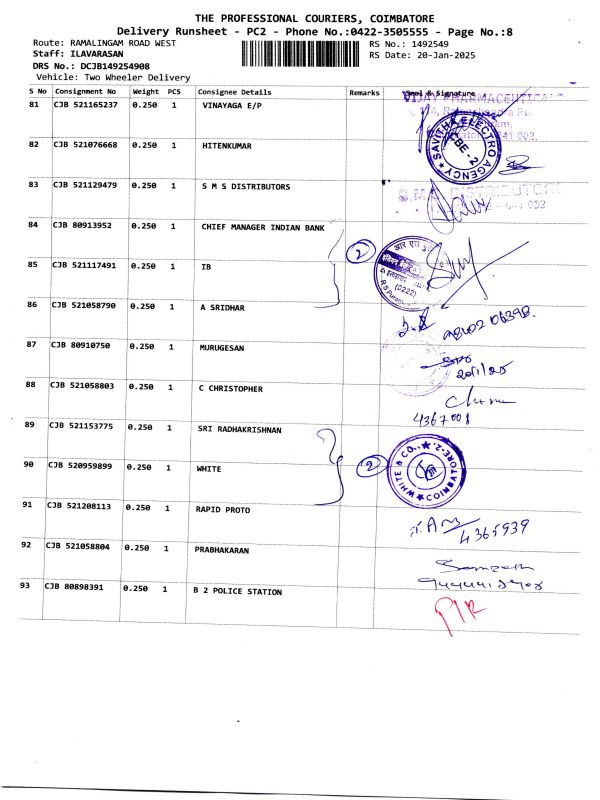 THE PROFESSIONAL COURIERS, COIMBATORE
Delivery Runsheet - PC2 - Phone No.:0422-3505555 - Page No.:8
Route: RAMALINGAM ROAD WEST
RS No.: 1492549
Staff: ILAVARASAN
RS Date: 20-Jan-2025
DRS No.: DCJB149254908
Vehicle: Two Wheeler Delivery
S No Consignment No Weight PCS Consignee Details Remarks Seal & Signature
81 CJB 521165237 0.250 1 VINAYAGA E/P
VIJAY PHARMACEUTICALS
82 CJB 521076668 0.250 1 HITENKUMAR
SAVITHA ELECTRO AGENCY
CBE - 2
83 CJB 521129479 0.250 1 S M S DISTRIBUTORS
S.M.S. DISTRIBUTORS
84 CJB 80913952 0.250 1 CHIEF MANAGER INDIAN BANK
2
85 CJB 521117491 0.250 1 IB
(0222)
86 CJB 521058790 0.250 1 A SRIDHAR
87 CJB 80910750 0.250 1 MURUGESAN
20/1/25
88 CJB 521058803 0.250 1 C CHRISTOPHER
4367008
89 CJB 521153775 0.250 1 SRI RADHAKRISHNAN
90 CJB 520959899 0.250 1 WHITE
2
WHITE & CO., ★ COIMBATORE-2. ★
91 CJB 521208113 0.250 1 RAPID PROTO
4365939
92 CJB 521058804 0.250 1 PRABHAKARAN
93 CJB 80898391 0.250 1 B 2 POLICE STATION